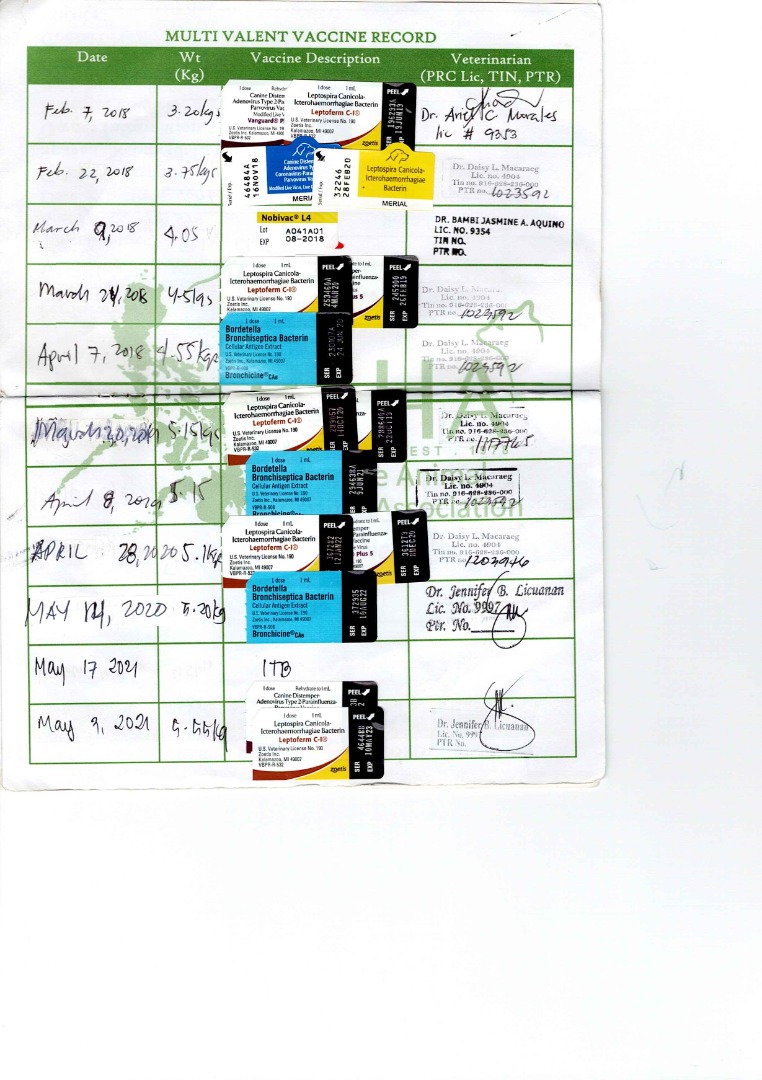 MULTI VALENT VACCINE RECORD
Date Wt (Kg) Vaccine Description Veterinarian (PRC Lic, TIN, PTR)
Feb. 7, 2018 3.20kgs
1 dose Rehydr
Canine Distem
Adenovirus Type 2-Pa
Parvovirus Vac
Modified Live V
Vanguard® P
U.S. Veterinary License No. 19
Zoetis Inc.
Kalamazoo, MI 490
VBPR-R-532
1 dose 1 mL
Leptospira Canicola-
Icterohaemorrhagiae Bacterin
Leptoferm C-I®
U.S. Veterinary License No. 190
Zoetis Inc.
Kalamazoo, MI 49007
zoetis
PEEL
SER
EXP
Dr. Ariel C. Morales
lic # 9353
Feb. 22, 2018 3.75kgs
Serial / Exp.
46484A
16NOV18
Canine Distem
Adenovirus Ty
Coronavirus-Para
Parvovirus
MERIAL
32246
28FEB20
Leptospira Canicola-
Icterohaemorrhagiae
Bacterin
MERIAL
Dr. Daisy L. Macaraeg
Lic. no. 4904
Tin no. 916-628-236-000
PTR no. 1023592
March 9, 2018 4.05
Nobivac® L4
Lot A041A01
EXP 08-2018
DR. BAMBI JASMINE A. AQUINO
LIC. NO. 9354
TIN NO.
PTR NO.
March 24, 2018 4.5kgs
1 dose 1 mL
Leptospira Canicola-
Icterohaemorrhagiae Bacterin
Leptoferm C-I®
U.S. Veterinary License No. 190
Zoetis Inc.
Kalamazoo, MI 49007
PEEL
SER
EXP
PEEL
SER
EXP
Dr. Daisy L. Macaraeg
Lic. no. 4904
Tin no. 916-628-236-000
PTR no. 1023592
April 7, 2018 4.55kgs
1 dose 1 mL
Bordetella
Bronchiseptica Bacterin
Cellular Antigen Extract
U.S. Veterinary License No. 190
Zoetis Inc., Kalamazoo, MI 49007
VBPR-R-508
Bronchicine®CAe
SER
EXP
Dr. Daisy L. Macaraeg
Lic. no. 4904
Tin no. 916-628-236-000
PTR no. 1023592
March 30, 2019 5.15kgs
1 dose 1 mL
Leptospira Canicola-
Icterohaemorrhagiae Bacterin
Leptoferm C-I®
U.S. Veterinary License No. 190
Zoetis Inc.
Kalamazoo, MI 49007
VBPR-R-532
PEEL
SER
EXP
Dr. Daisy L. Macaraeg
Lic. no. 4904
Tin no. 916-628-236-000
PTR no.
April 8, 2019 5.15
1 dose 1 mL
Bordetella
Bronchiseptica Bacterin
Cellular Antigen Extract
U.S. Veterinary License No. 190
Zoetis Inc., Kalamazoo, MI 49007
SER
EXP
Dr. Daisy L. Macaraeg
Lic. no. 4904
Tin no. 916-628-236-000
PTR no. 1023592
APRIL 28, 2020 5.1kg
1 dose 1 mL
Leptospira Canicola-
Icterohaemorrhagiae Bacterin
Leptoferm C-I®
U.S. Veterinary License No. 190
Zoetis Inc.
Kalamazoo, MI 49007
PEEL
SER
EXP
Plus 5
PEEL
SER
EXP
Dr. Daisy L. Macaraeg
Lic. no. 4904
Tin no. 916-628-236-000
MAY 14, 2020 5.20kg
1 dose 1 mL
Bordetella
Bronchiseptica Bacterin
Cellular Antigen Extract
U.S. Veterinary License No. 190
Zoetis Inc., Kalamazoo, MI 49007
VBPR-R-508
Bronchicine®CAe
372935
SER
EXP
Dr. Jennifer B. Licuanan
Lic. No. 9997
Ptr. No.
May 17 2021 ITB
May 9, 2021 5.55kg
1 dose Rehydrate to 1 mL
Canine Distemper-
Adenovirus Type 2-Parainfluenza-
PEEL
1 dose 1 mL
Leptospira Canicola-
Icterohaemorrhagiae Bacterin
Leptoferm C-I®
U.S. Veterinary License No. 190
Zoetis Inc.
Kalamazoo, MI 49007
VBPR-R-532
zoetis
PEEL
SER
EXP
10MAY23
Dr. Jennifer B. Licuanan
Lic. No. 9997
PTR No.